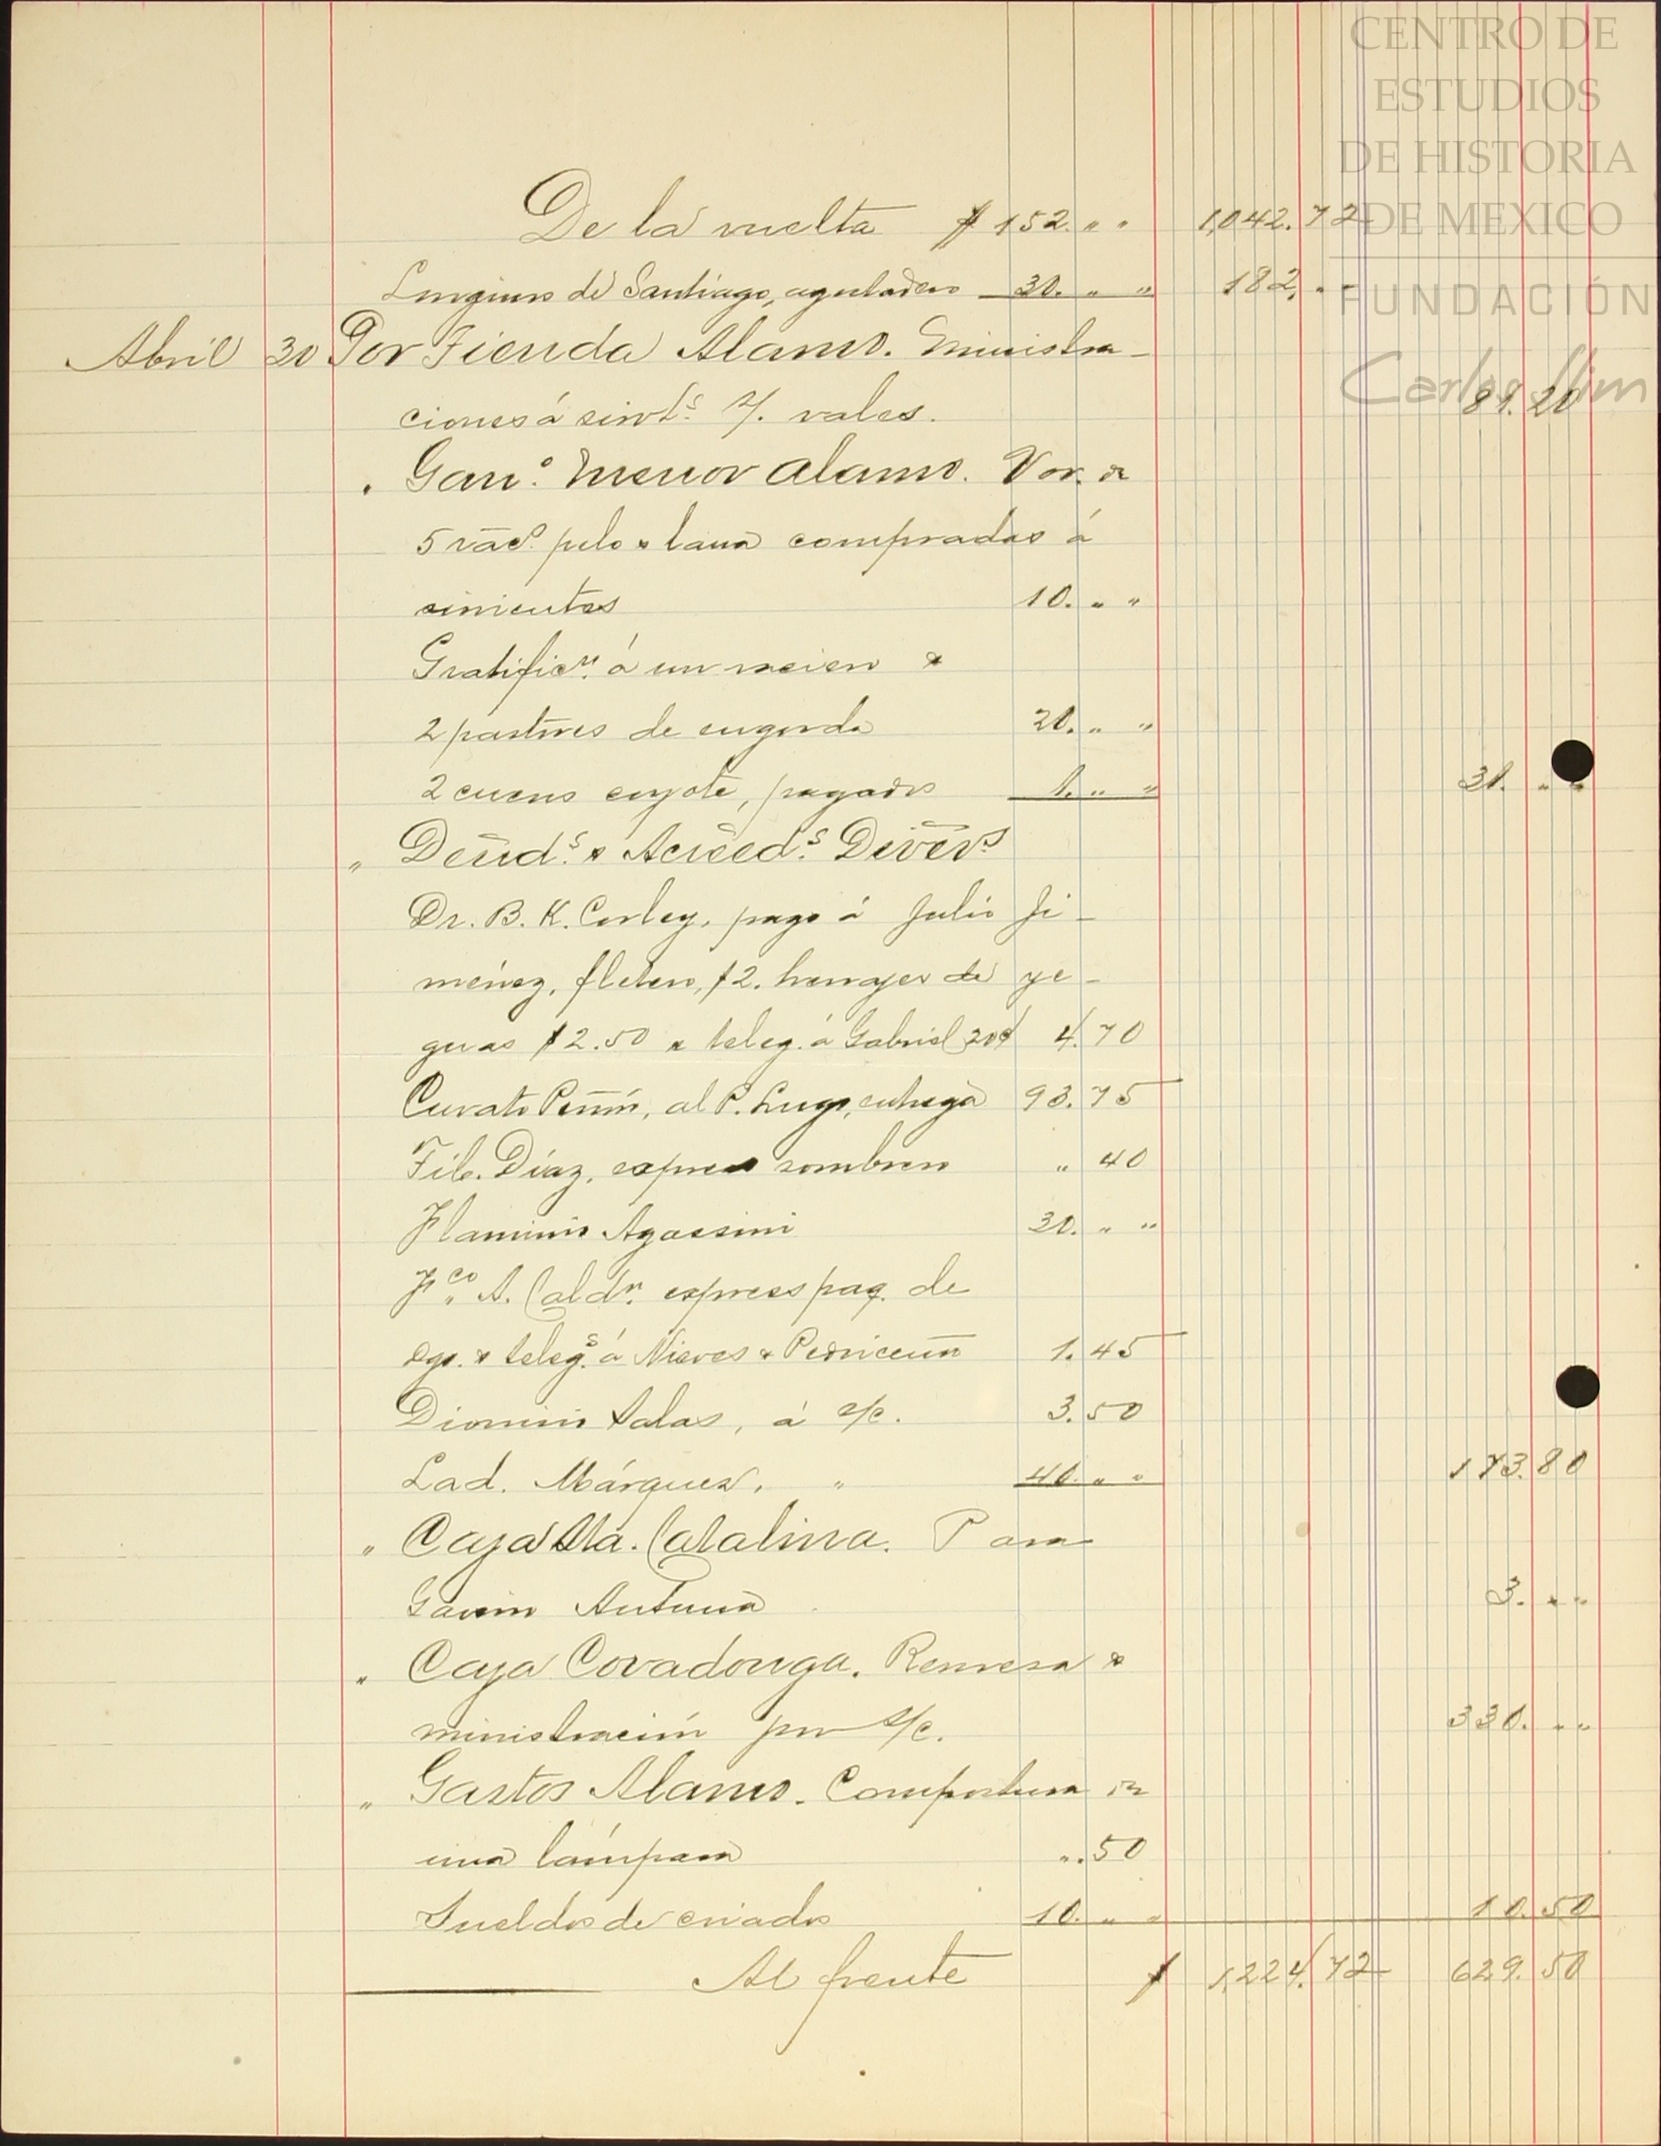 CENTRO DE
ESTUDIOS
DE HISTORIA
DE MEXICO
FUNDACIÓN
Carlos Slim
De la vuelta $ 152. " " 1,042.72
Longinos de Santiago, 30. " " 182. " "
Abril 30 Por Tienda Alamo. Ministra-
ciones á sirvts. s/. vales. 81.20
" Gano. Menor Alamo. Vor. de
5 pelo & lana compradas á
sirvientes 10. " "
Gratificn. á un &
2 pastores de engorda 20. " "
2 cueros coyote, pagados 1. " " 31. " "
" Deuds. & Acreeds. Divers
Dr. B. K. Corley, pago á Julio Ji-
ménez, fletero, $2. herrajes de ye-
guas $2.50 & teleg. á Gabriel 20¢ 4.70
Curato Peñón, al P. Lugo, entrega 93.75
Filo. Díaz, express sombrero " 40
Flaminio Agazzini 30. " "
Fco. A. Caldn. express paq. de
Dgo. & telegs. á Nieves & Pedriceña 1.45
Dionisio Salas, á s/c. 3.50
Lad. Márquez, " 40. " " 173.80
" Caja Sta. Catalina. Para
Antuña 3. " "
" Caja Covadonga. Remesa &
ministración por s/c. 330. " "
" Gastos Alamo. Compostura de
una lámpara ".50
Sueldos de criados 10. " " 10.50
Al frente $ 1,224.72 629.50